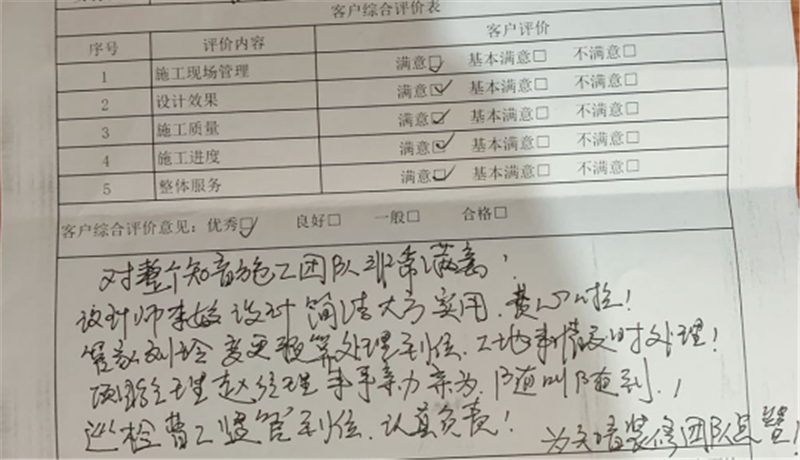 客户综合评价表
序号 评价内容 客户评价
1 施工现场管理 满意☑ 基本满意□ 不满意□
2 设计效果 满意☑ 基本满意□ 不满意□
3 施工质量 满意☑ 基本满意□ 不满意□
4 施工进度 满意☑ 基本满意□ 不满意□
5 整体服务 满意☑ 基本满意□ 不满意□
客户综合评价意见：优秀☑ 良好□ 一般□ 合格□
对整个知音施工团队非常满意！
设计师李姣设计简洁大方实用，费心啦！
管家刘玲变更预算处理到位，工地事情及时处理！
项目经理赵经理事事亲力亲为，随叫随到，！
巡检曹工监管到位，认真负责！
为知音装修团队点赞！